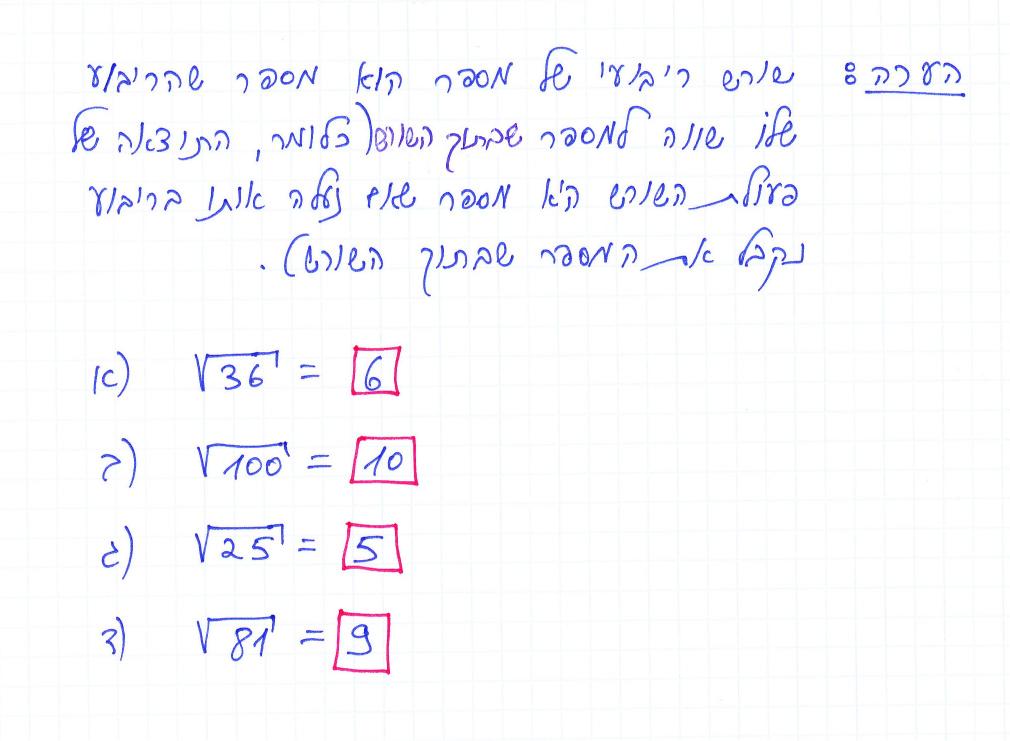 הערה: שורש ריבועי של מספר הוא מספר שהריבוע
שלו שווה למספר שבתוך השורש (כלומר, התוצאה של
פעולת השורש היא מספר שאם נעלה אותו בריבוע
נקבל את המספר שבתוך השורש).
א) √36 = 6
ב) √100 = 10
ג) √25 = 5
ד) √81 = 9